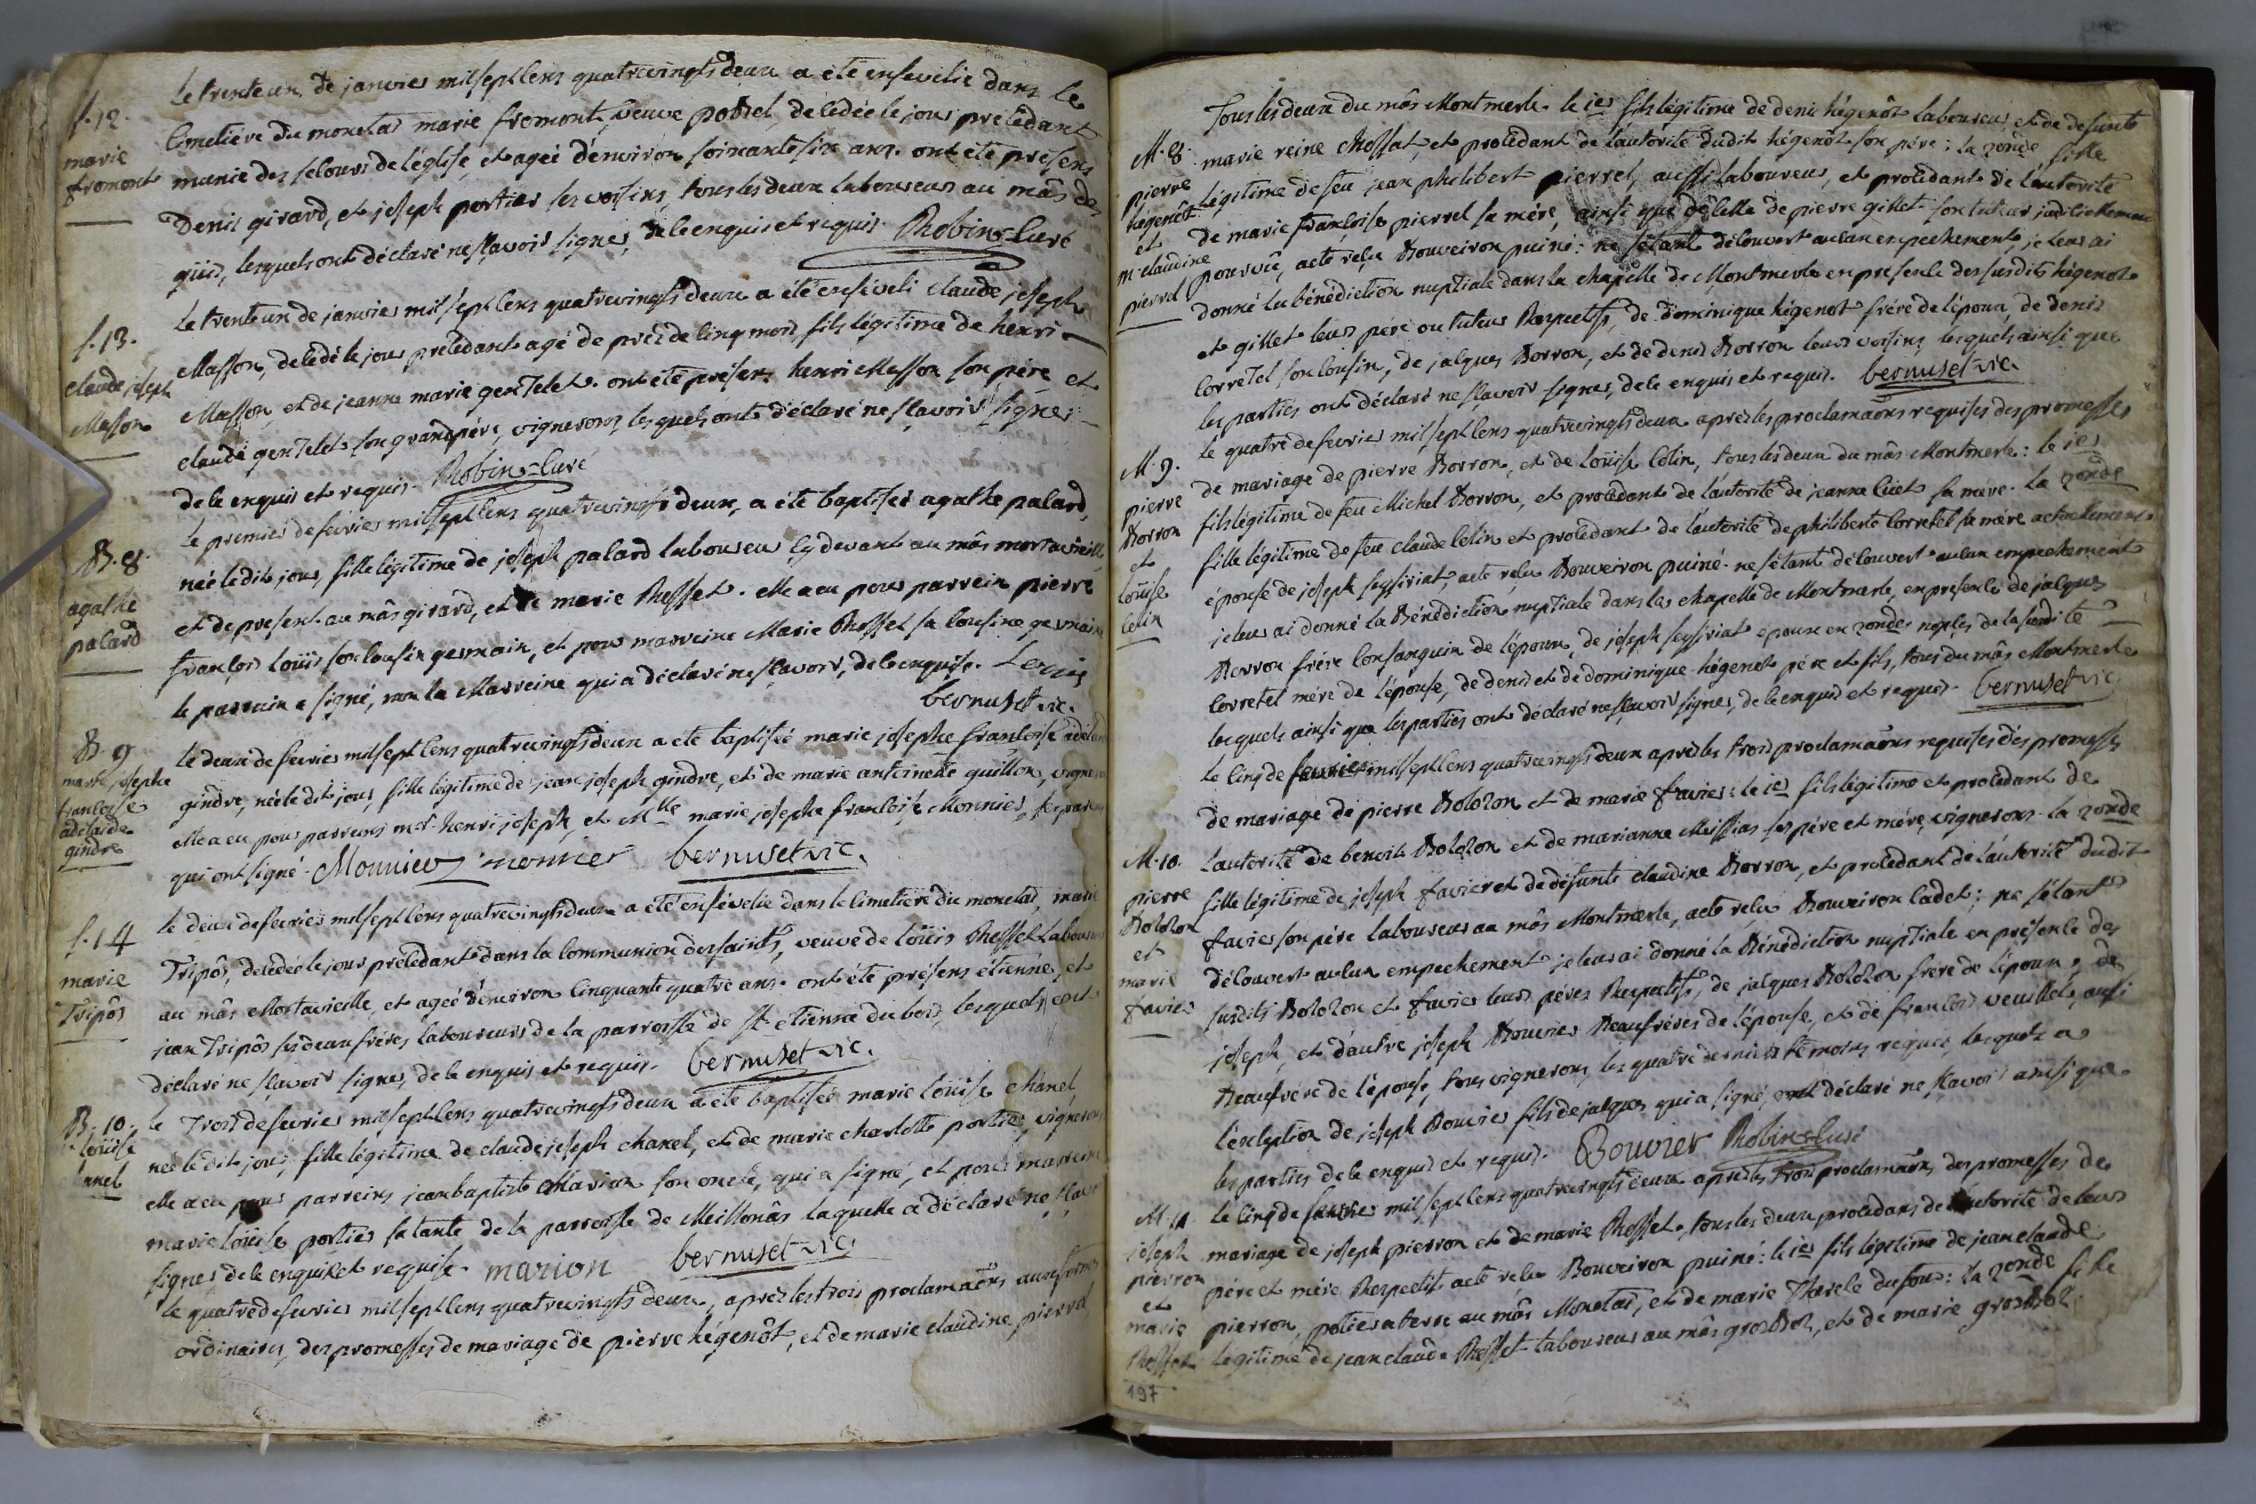 S. 12.
marie
fromont
Le trenteun de janvier mil sept cens quatrevingts deux a été ensevelie dans le
cimetière du monetai marie fromont, veuve, décédée le jour précédant
munie des secours de l'église, et ageé d'environ soixante six ans. ont été présens
Denis girard, et joseph portier ses voisins, tous les deux laboureurs au mâs des
lesquels ont déclaré ne sçavoir signer, de ce enquis et requis. Robin = Curé
S. 13.
claude joseph
Masson
Le trenteun de janvier mil sept cens quatrevingts deux a été enséveli claude joseph
Masson, décédé le jour précédant agé de près de cinq mois, fils légitime de henri
Masson, et de jeanne marie gentelet. ont été présens henri Masson son père et
claude gentelet son grand père, vignerons, lesquels ont déclaré ne sçavoir signer
de ce enquis et requis. Robin = Curé
B. 8.
agathe
palard
Le premier de fevrier mil sept cens quatrevingts deux, a été baptiseé agathe palard,
neé le dit jour, fille légitime de joseph palard laboureur cy devant au mâs mortavieille,
et de present au mâs girard, et de marie Rosset. elle a eu pour parrein pierre
françois Loüis son cousin germain, et pour marreine Marie Rosset sa cousine germaine
le parrain a signé, non la Marreine qui a déclaré ne sçavoir, de ce enquise. Louis
bernuset vic.
B. 9
marie josephe
francoise
adelaide
gindre
Le deux de fevrier mil sept cens quatrevingts deux a été baptiseé marie josephe francoise
gindre, neé le dit jour, fille légitime de jean joseph gindre, et de marie antoinette guillon,
elle a eu pour parreins mr. henri joseph, et Mlle marie josephe francoise Monnier,
qui ont signé. Monnier monnier bernuset vic.
S. 14
marie
Tripôs
Le deux de fevrier mil sept cens quatrevingts deux a été ensévelie dans le cimetière du monetai, marie
Tripôs, décédeé le jour précédant dans la communion des saints, veuve de Loüis Rosset laboureur
au mâs Mortavieille, et ageé d'environ cinquante quatre ans. ont été présens etienne, et
jean Tripôs ses deux frères, laboureurs de la parroisse de St. etienne du bois, lesquels ont
déclaré ne sçavoir signer, de ce enquis et requis. bernuset vic.
B. 10.
Loüise
anel
Le Trois de fevrier mil sept cens quatrevingts deux a été baptiseé marie Loüise chanel
neé le dit jour, fille légitime de claude joseph chanel, et de marie charlotte portier, vignerons
elle a eu pour parreins jean baptiste Marion son oncle, qui a signé, et pour marreine
marie Loüise portier sa tante de la parroisse de Meillonâs laquelle a déclaré ne sçavoir
signer, de ce enquise et requise. marion bernuset vic.
Le quatre de fevrier mil sept cens quatrevingts deux, après les trois proclamaôns aux formes
ordinaires, des promesses de mariage de pierre hégenôt, et de marie claudine pierrel
Tous les deux du mâs Montmerle. le 1er fils légitime de denis hégenôt laboureur, et de defunte
M. 8.
pierre
hégenôt
et
m. claudine
pierrel
marie reine chossat, et procédant de l'autorité dudit hégenôt son père: la 2onde fille
Légitime de feu jean philibert pierrel, aussi laboureur, et procédante de l'autorité
de marie françoise pierrel sa mère, ainsi que de celle de pierre gillet son tuteur judiciellement
pourvû, acte reçu Bouveiron puiné: ne s'étant découvert aucun empechement, je leur ai
donné la bénédiction nuptiale dans la chapelle de Montmerle en présence des susdits hégenot
et gillet leurs père ou tuteur Respectifs, de dominique hégenot frère de l'époux, de denis
Corretel son cousin, de jacques Borron, et de denis Borron leurs voisins, lesquels ainsi que
les parties ont déclaré ne sçavoir signer, de ce enquis et requis. bernuset vic.
M. 9.
pierre
Borron
et
Loüise
Colin
Le quatre de fevrier mil sept cens quatrevingts deux après les proclamaôns requises des promesses
de mariage de pierre Borron, et de Loüise Colin, tous les deux du mâs Montmerle: le 1er
fils légitime de feu Michel Borron, et procédant de l'autorité de jeanne sa mère. La 2onde
fille légitime de feu claude Colin et procédant de l'autorité de philiberte Corretel sa mère actuellement
épouse de joseph seysiriat, acte reçu Bouveiron puiné. ne s'étant découvert aucun empechement
je leur ai donné la Bénédiction nuptiale dans la chapelle de Montmerle, en présence de jacques
Borron frère consanguin de l'époux, de joseph seysiriat époux en 2ondes nopces de la susdite
Corretel mère de l'épouse, de denis et de dominique hégenot père et fils, tous du mâs Montmerle
lesquels ainsi que les parties ont déclaré ne sçavoir signer, de ce enquis et requis. bernuset vic.
M. 10.
pierre
Bolozon
et
marie
favier
Le cinq de fevrier mil sept cens quatrevingts deux après les trois proclamaôns requises des promesses
de mariage de pierre Bolozon et de marie favier: le 1er fils légitime et procédant de
L'autorité de benoit Bolozon et de marianne Meissias ses père et mère, vignerons. la 2onde
fille légitime de joseph favier et de défunte claudine Borron, et procédant de l'autorité dudit
favier son père laboureur au mâs Montmerle, acte reçu Bouveiron cadet; ne s'étant
découvert aucun empechement je leur ai donné la Bénédiction nuptiale en présence des
susdits Bolozon et favier leurs pères Respectifs, de jacques Bolozon frère de l'époux, de
joseph, et d'autre joseph Bouvier Beaufrères de l'épouse, et de françois veuillet aussi
Beaufrère de l'épouse, tous vignerons, les quatre derniers témoins requis, lesquels a
l'exception de joseph Bouvier fils de jacques qui a signé, ont déclaré ne sçavoir ainsi que
les parties de ce enquis et requis. Bouvier Robin = Curé
M. 11
joseph
pierron
et
marie
Rosset
Le cinq de fevrier mil sept cens quatrevingts deux après les trois proclamaôns, des promesses de
mariage de joseph pierron et de marie Rosset, tous les deux procédans de l'autorité de leurs
père et mère Respectifs, acte reçu Bouveiron puiné: le 1er fils légitime de jean claude
pierron, potier a terre au mâs Monetai, et de marie Therese dufour: la 2onde fille
légitime de jean claude Rosset laboureur au mâs grosBoz, et de marie grosBoz.
197